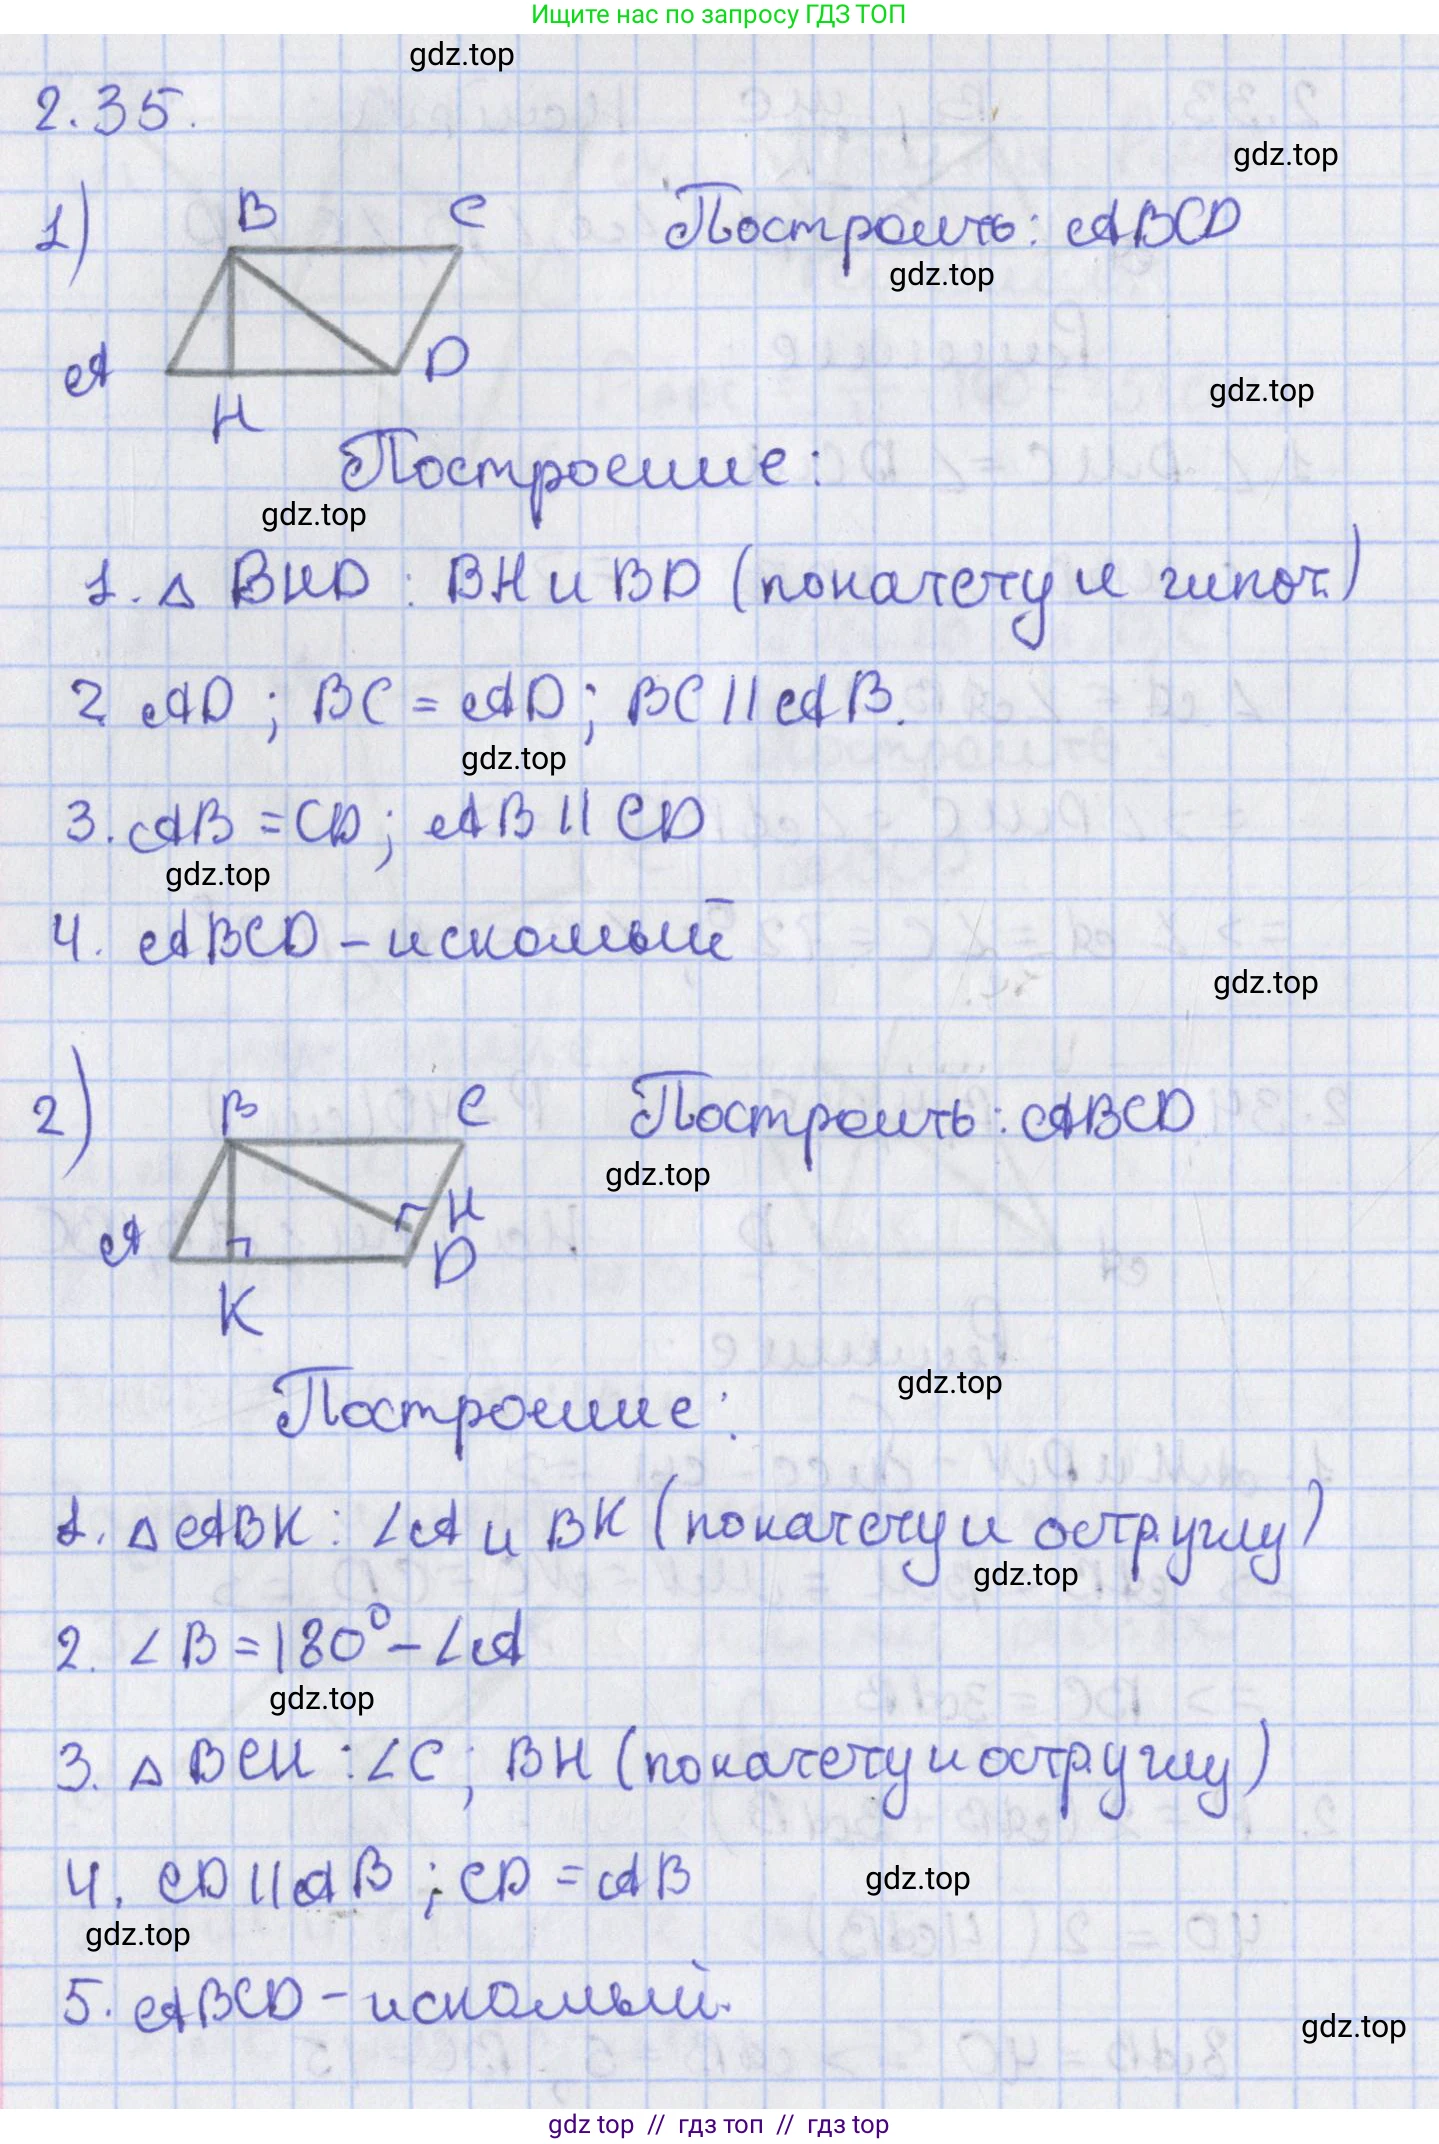 Ищите нас по запросу ГДЗ ТОП
gdz.top
2.35.
gdz.top
1)
B C
Построить: ABCD
gdz.top
A D
gdz.top
H
Построение:
gdz.top
1. △ BHD : BH и BD (по катету и гипот.)
2. AD ; BC = AD ; BC || AB.
gdz.top
3. AB = CD ; AB || CD
gdz.top
4. ABCD – искомый
gdz.top
2)
B C
Построить: ABCD
gdz.top
A H
D
K
gdz.top
Построение:
1. △ ABK : ∠A и BK (по катету и остр. углу)
gdz.top
2. ∠B = 180° – ∠A
gdz.top
3. △ BCH : ∠C ; BH (по катету и остр. углу)
4. CD || AB ; CD = AB
gdz.top
gdz.top
5. ABCD – искомый.
gdz.top
gdz top // гдз топ // гдз top